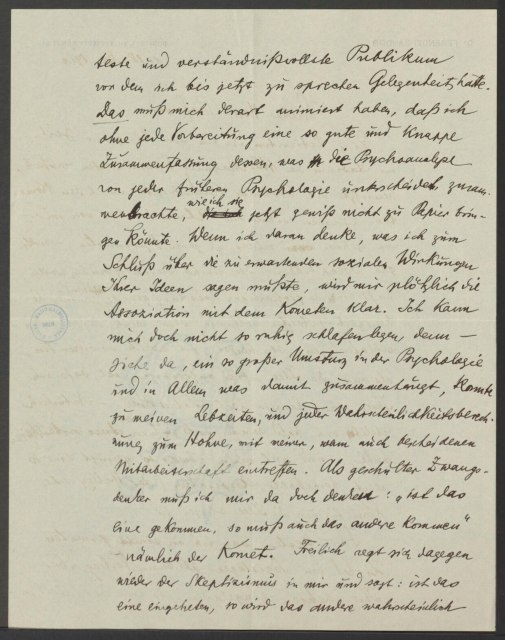 teste und verständnißvollste Publikum
vor dem ich bis jetzt zu sprechen Gelegenheit hatte.
Das muß mich derart animiert haben, daß ich
ohne jede Vorbereitung eine so gute und knappe
Zusammenfassung dessen, was die Psychoanalyse
von jeder früheren Psychologie unterscheidet, zusam-
menbrachte, wie ich sie jetzt gewiß nicht zu Papier brin-
gen könnte. Wenn ich daran denke, was ich zum
Schluß über die zu erwartenden sozialen Wirkungen
Ihrer Ideen sagen mußte, wird mir plötzlich die
Assoziation mit dem Kometen klar. Ich kann
mich doch nicht so ruhig schlafen legen, denn —
siehe da, ein so großer Umsturz in der Psychologie
und in Allem was damit zusammenhängt, konnte
zu meinen Lebzeiten, und jeder Wahrscheinlichkeitsberech-
nung zum Hohne, mit meiner, wenn auch bescheidenen
Mitarbeiterschaft eintreffen. Als geschulter Zwangs-
denker muß ich mir da doch denken: „ist das
eine gekommen, so muß auch das andere kommen"
– nämlich der Komet. Freilich regt sich dagegen
wieder der Skeptizismus in mir und sagt: ist das
eine eingetreten, so wird das andere wahrscheinlich